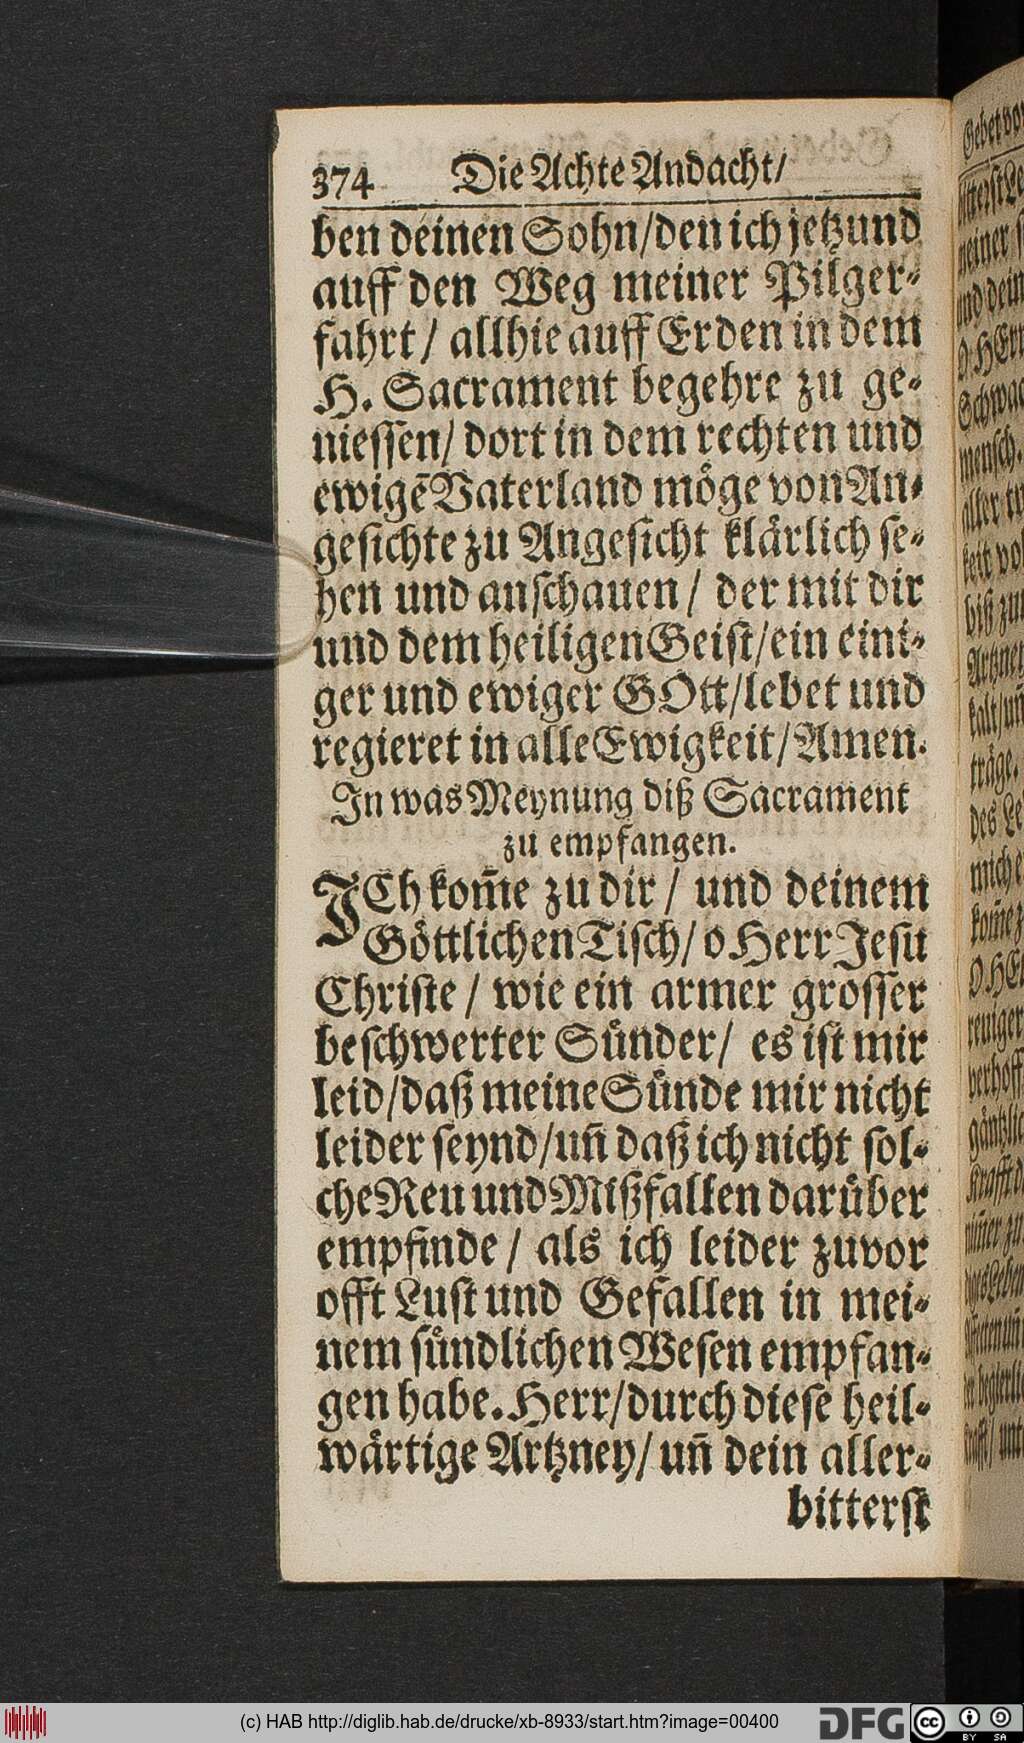 374 Die Achte Andacht/
ben deinen Sohn/den ich jetzund
auff den Weg meiner Pilger-
fahrt/ allhie auff Erden in dem
H. Sacrament begehre zu ge-
niessen/ dort in dem rechten und
ewigē Vaterland möge von An-
gesichte zu Angesicht klärlich se-
hen und anschauen/ der mit dir
und dem heiligen Geist/ein eini-
ger und ewiger GOtt/lebet und
regieret in alle Ewigkeit/Amen.
In was Meynung diß Sacrament
zu empfangen.
ICh kom̃e zu dir/ und deinem
Göttlichen Tisch/ o Herr Jesu
Christe/ wie ein armer grosser
beschwerter Sünder/ es ist mir
leid/daß meine Sünde mir nicht
leider seynd/un̄ daß ich nicht sol-
che Reu und Mißfallen darüber
empfinde/ als ich leider zuvor
offt Lust und Gefallen in mei-
nem sündlichen Wesen empfan-
gen habe. Herr/durch diese heil-
wärtige Artzney/ un̄ dein aller-
bitterst
(c) HAB http://diglib.hab.de/drucke/xb-8933/start.htm?image=00400
DFG
cc BY SA